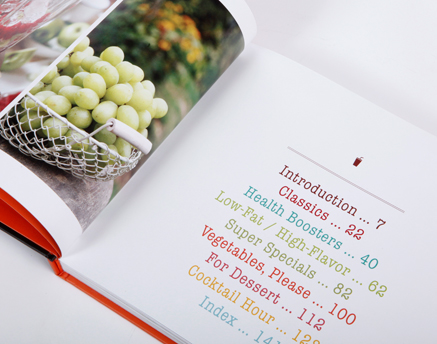 Introduction ... 7
Classics ... 22
Health Boosters ... 40
Low-Fat / High-Flavor ... 62
Super Specials ... 82
Vegetables, Please ... 100
For Dessert ... 112
Cocktail Hour ...
Index ...